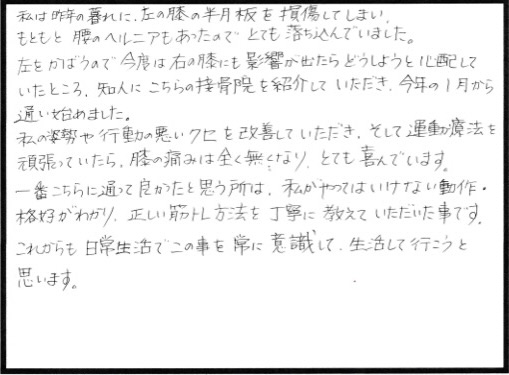 私は昨年の暮れに、左の膝の半月板を損傷してしまい、
もともと腰のヘルニアもあったのでとても落ち込んでいました。
左をかばうので今度は右の膝にも影響が出たらどうしようと心配して
いたところ、知人にこちらの接骨院を紹介していただき、今年の1月から
通い始めました。
私の姿勢や行動の悪いクセを改善していただき、そして運動療法を
頑張っていたら、膝の痛みは全く無くなり、とても喜んでいます。
一番こちらに通って良かったと思う所は、私がやってはいけない動作・
格好がわかり、正しい筋トレ方法を丁寧に教えていただいた事です。
これからも日常生活でこの事を常に意識して、生活して行こうと
思います。